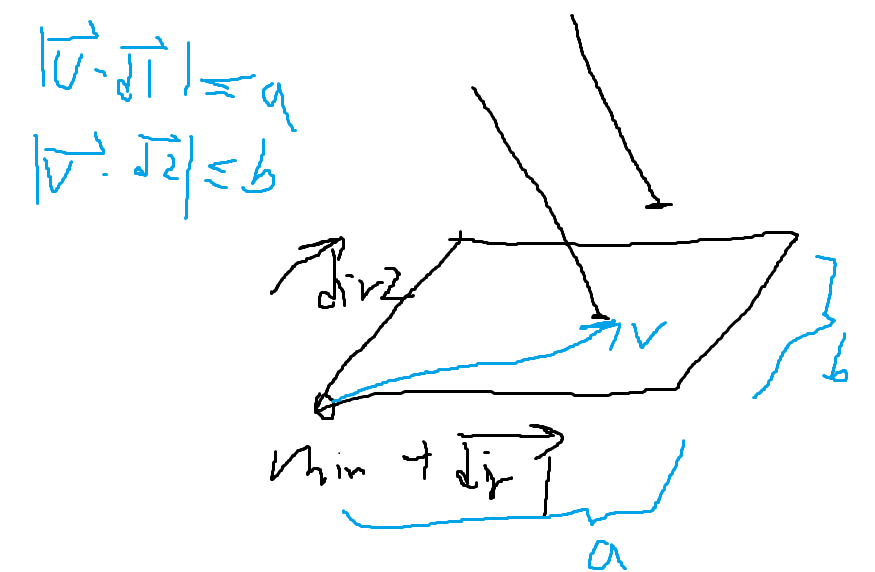 |U⃗ · d1⃗| ≤ a
|V⃗ · d2⃗| ≤ b
dir2
V
b
min + dir1
a